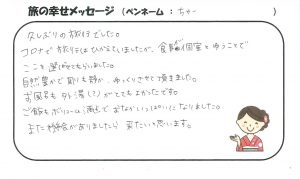 旅の幸せメッセージ (ペンネーム：ちゃー)
久しぶりの旅行でした。
コロナで旅行はひかえていましたが、食事も個室とゆうことで
ここを選ばせてもらいました。
自然豊かで周りも静か、ゆっくりさせて頂きました。
お風呂も外湯(?)がとてもよかったです。
ご飯もボリューム満点でおなかいっぱいになりました。
また機会がありましたら来たいと思います。